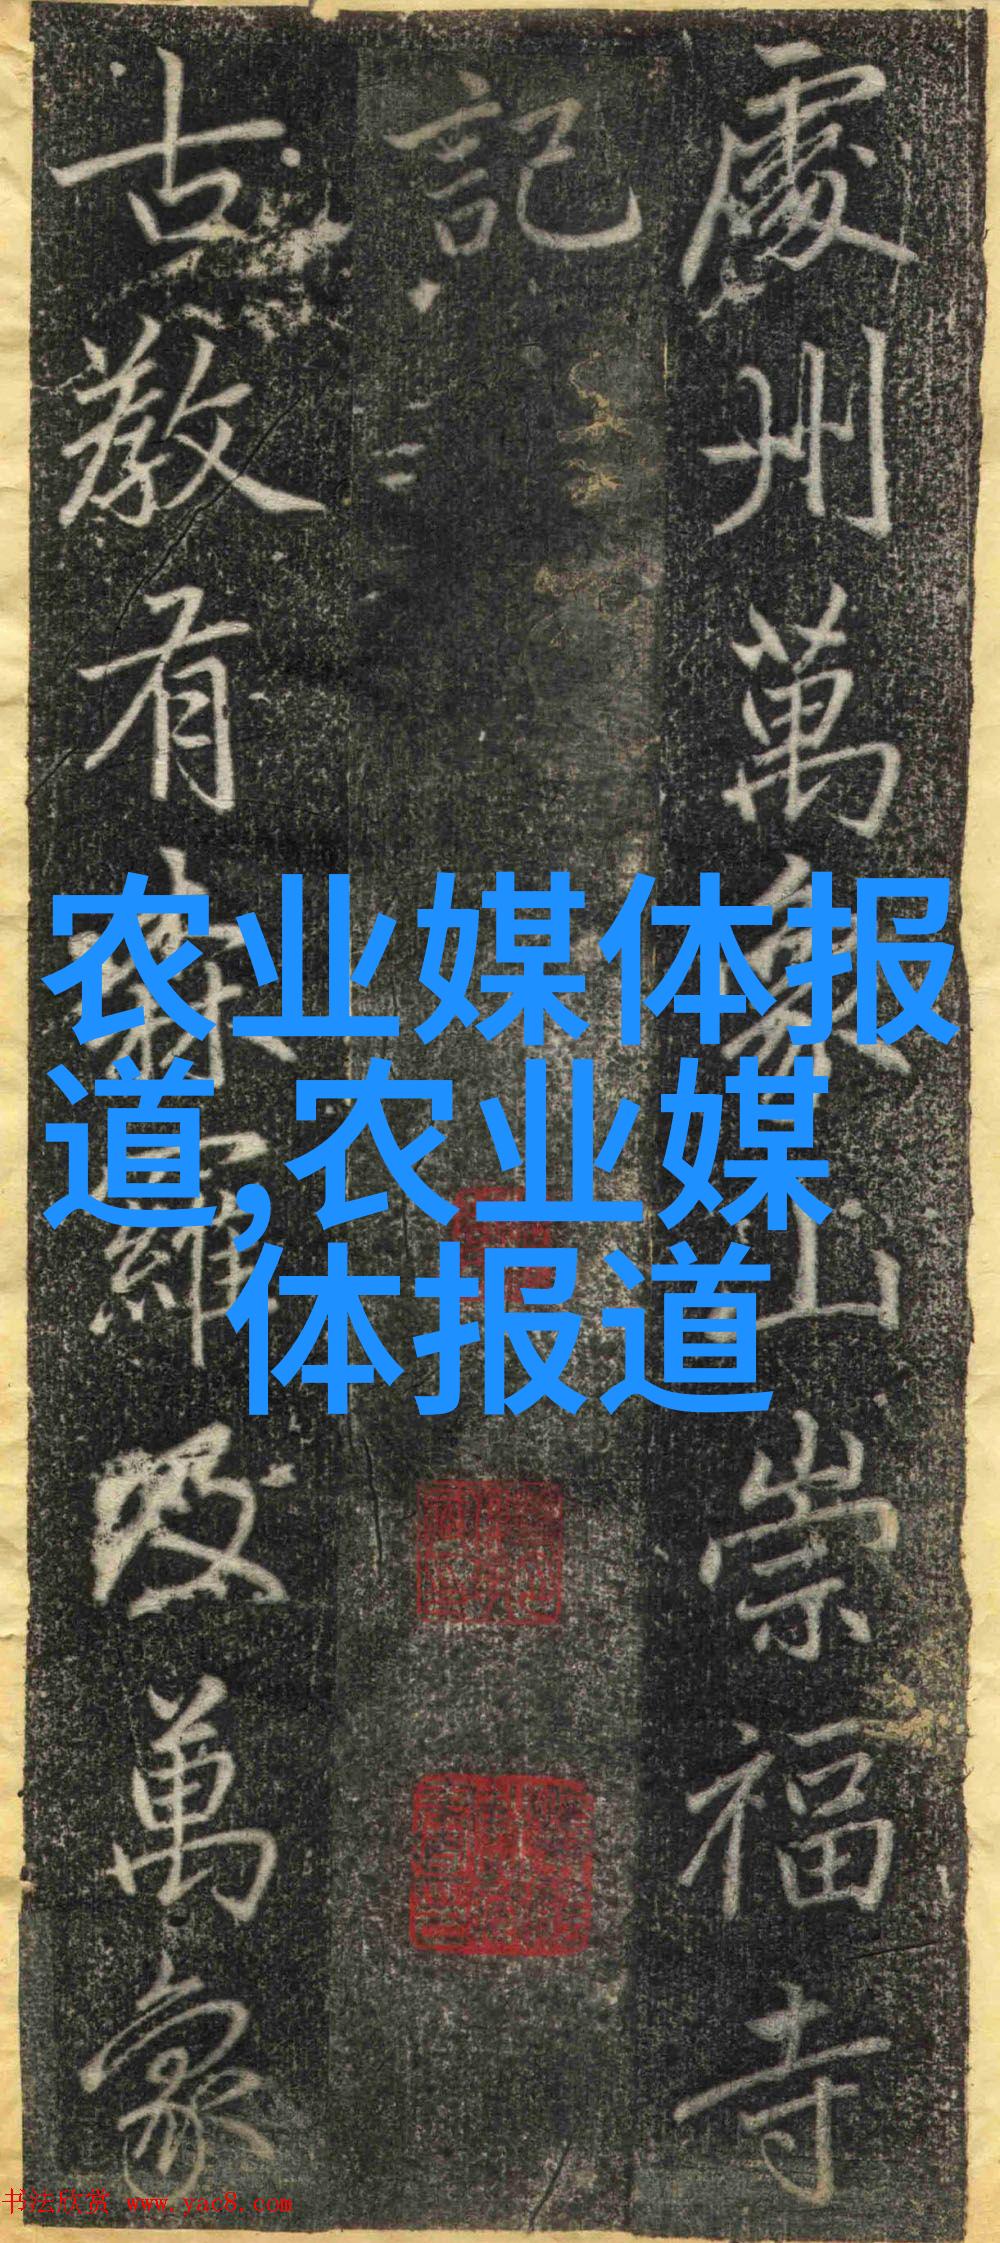 處州萬象山崇福寺
記
古教有森羅及萬象
农业媒体报
道,农业媒
体报道
书法欣赏 www.yac8.com